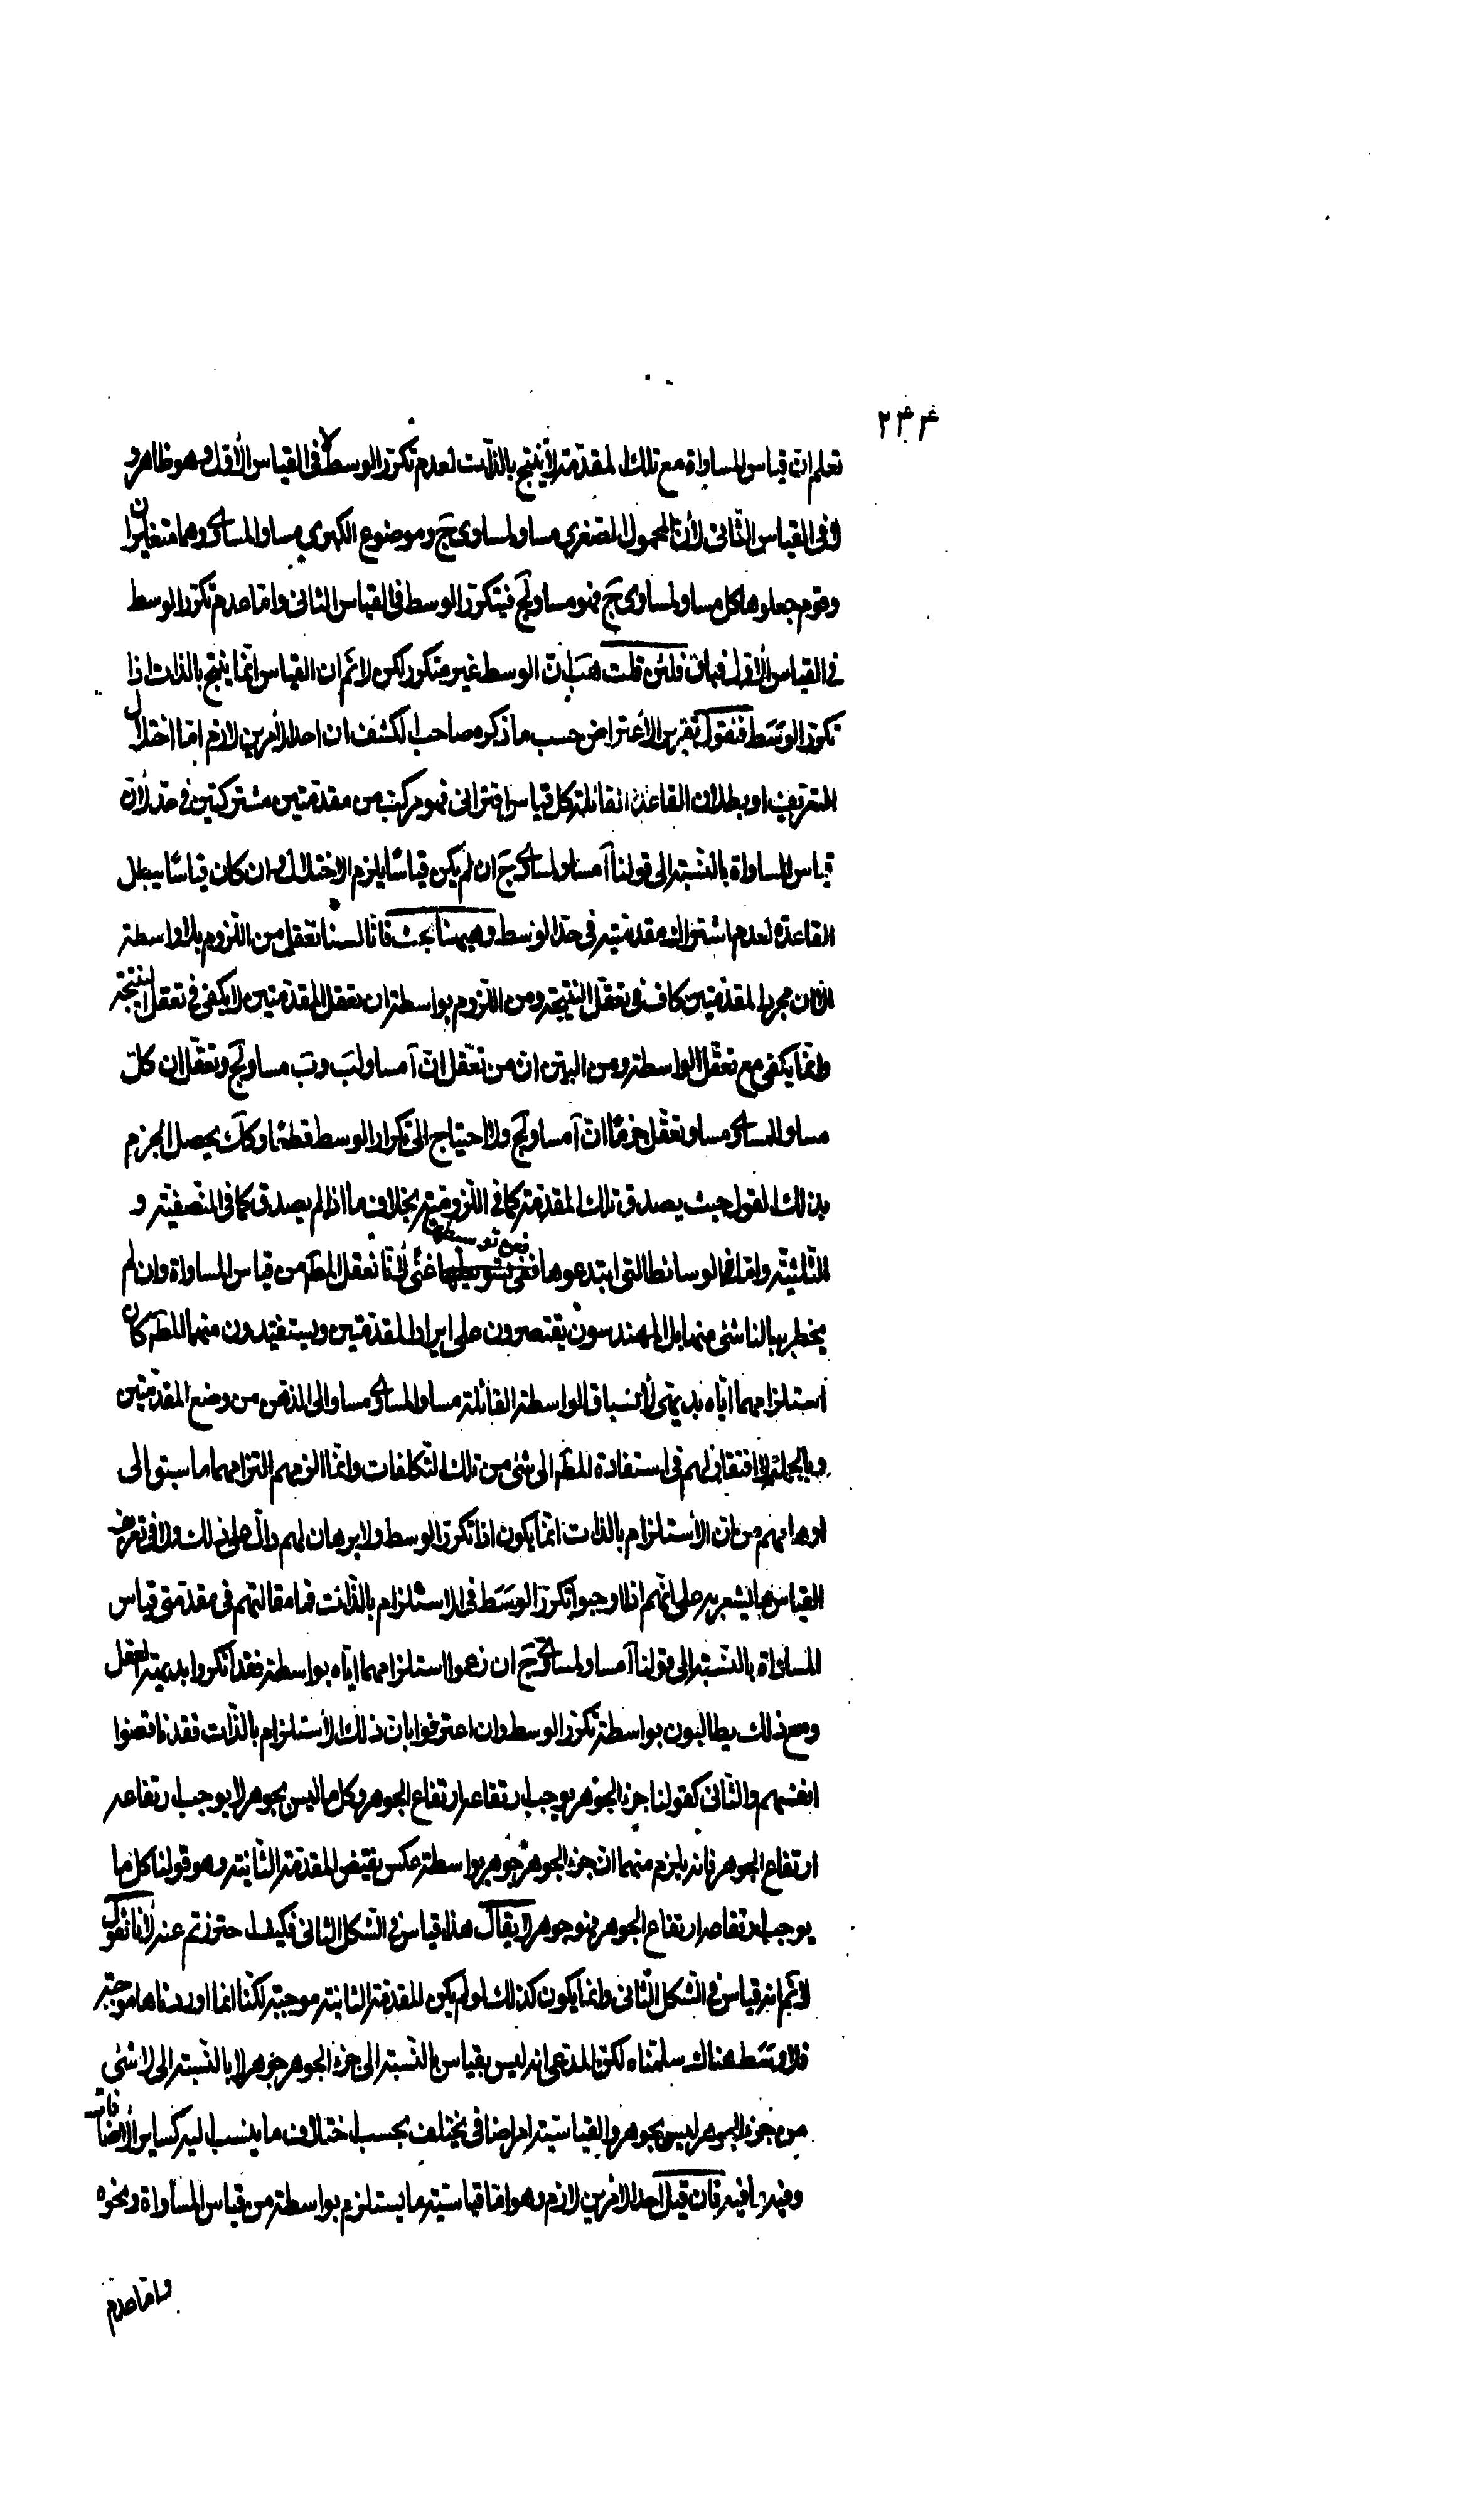 ٢٣٤
تعلم ان قياس المساواة مع تلك المقدمة لا ينتج بالذات لعدم تكرر الوسط لا فى القياس الأول وهو ظاهر و
لا فى القياس الثانى لأن المحمول الصغرى مساو لمساوى ج وموضوع الكبرى مساو المساوى وهما متغايران
وقوم جعلوها كل مساو لمساوى ج فهو مساو لج فيتكرر الوسط فى القياس الثانى واما عدم تكرر الوسط
فى القياس الأول فباق فلئن قلت هب ان الوسط غير متكرر لكن لا نم ان القياس انما ينتج بالذات اذا
تكرر الوسط فنقول تقرير الأعتراض حسب ما ذكره صاحب الكشف ان احد الأمرين لازم اما اختلال
التعريف او بطلان القاعدة القائلة كل قياس اقترانى فهو مركب من مقدمتين مشتركتين فى حد لأن
قياس المساواة بالنسبة الى قولنا آ مساو لمساوى ج ان لم يكن قياسًا يلزم الاختلال وان كان قياسًا يبطل
القاعدة لعدم اشتراك مقدمتيه فى حد الوسط وههنا بحث فانا لسنا نعقل من اللزوم بلا واسطة
الا ان مجرد المقدمتين كاف فى تعقل النتيجة ومن اللزوم بواسطة ان تعقل المقدمتين لا يكفى فى تعقل النتيجة
وانما يكفى مع تعقل الواسطة ومن البين ان من تعقل ان آ مساو لب وب مساو لج وتعقل ان كل
مساو المساوى مساو تعقل جزمًا ان آ مساو لج ولا احتياج الى تكرار الوسط قطعًا وكك يحصل الجزم
بذلك القول حيث يصدق تلك المقدمة كما فى اللزومية بخلاف ما اذا لم يصدق كما فى النصفية و
الثلثية واما الوسائط التى ابتدعوها فعن توسيطها غنى لأنا نعقل المط من قياس المساواة وان لم
يخطر ببالنا شئ منها بل المهندسون يقتصرون على ايراد المقدمتين ويستفيدون منهما المط كان
استلزامهما اياه بديهى لأنسباق الواسطة القائلة مساو المساوى مساو الى الذهن من وضع المقدمتين
وبالجملة لا افتقار لهم فى استفادة المط الى شئ من تلك التكلفات وانما الزمهم التزامهما ما سبق الى
اوهامهم من ان الأستلزام بالذات انما يكون اذا تكرر الوسط ولا برهان لهم دال على ذلك ولا فى تعريف
القياس ما يشعر به على انهم اذا اوجبوا تكرر الوسط فى الاستلزام بالذات فما مقالتهم فى مقدمتى قياس
المساواة بالنسبة الى قولنا آ مساو لمساوى ج ان زعموا استلزامهما اياه بواسطة فقد انكروا بديهة العقل
ومع ذلك يطالبون بواسطة تكرر الوسط وان اعترفوا بان ذلك الأستلزام بالذات فقد ناقضوا
انفسهم والثانى كقولنا جزء الجوهر يوجب ارتفاعه ارتفاع الجوهر وكل ما ليس بجوهر لا يوجب ارتفاعه
ارتفاع الجوهر فانه يلزم منهما ان جزء الجوهر جوهر بواسطة عكس نقيض المقدمة الثانية وهو قولنا كل ما
يوجب ارتفاعه ارتفاع الجوهر فهو جوهر لا يقال هذا قياس فى الشكل الثانى فكيف احترزتم عنه لأنا نقول
لا نم انه قياس فى الشكل الثانى وانما يكون كذلك لو لم يكن المقدمة الثانية موجبة لكنا انما اوردناها موجبة
فلا وسط هناك سلمناه لكن المدعى انه ليس بقياس بالنسبة الى جزء الجوهر جوهر لا بالنسبة الى لا شئ
من جزء الجوهر ليس بجوهر والقياسية امر اضافى يختلف بحسب اختلاف ما ينسب اليه كساير الأضافات
وفيه ما فيه فان قيل احد الامرين لازم وهو اما قياسية ما يستلزم بواسطة من قياس المساواة ونحوه
واما عدم